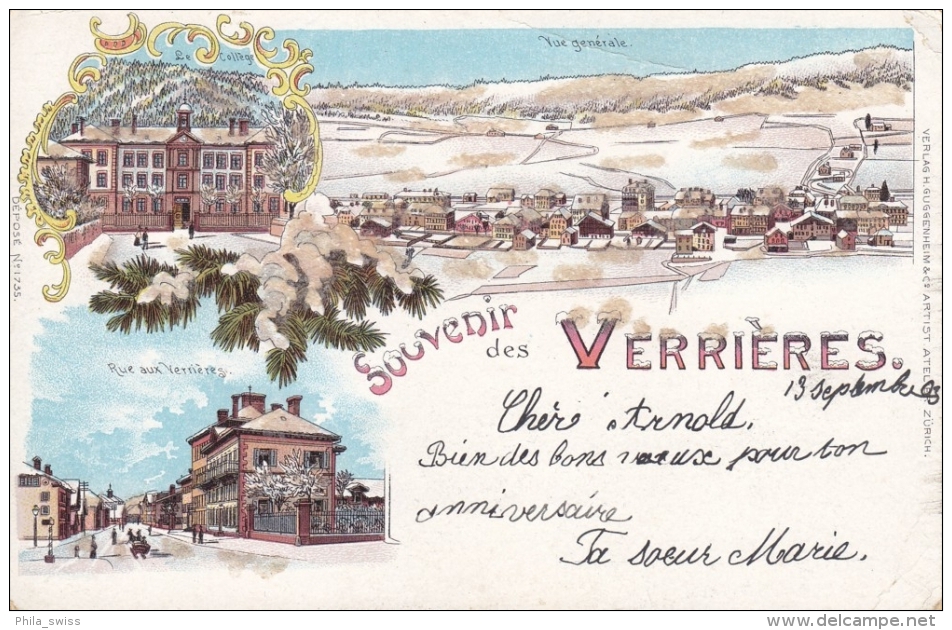 Le Collège
Vue générale.
DÉPOSÉ No. 1735.
VERLAG H. GUGGENHEIM & Co. ARTIST ATEL ZÜRICH.
Souvenir
des VERRIÈRES.
Rue aux Verrières.
13 septembre
Chèr Arnold.
Bien des bons vœux pour ton
anniversaire
Ta soeur Marie.
Phila_swiss
delcampe.net